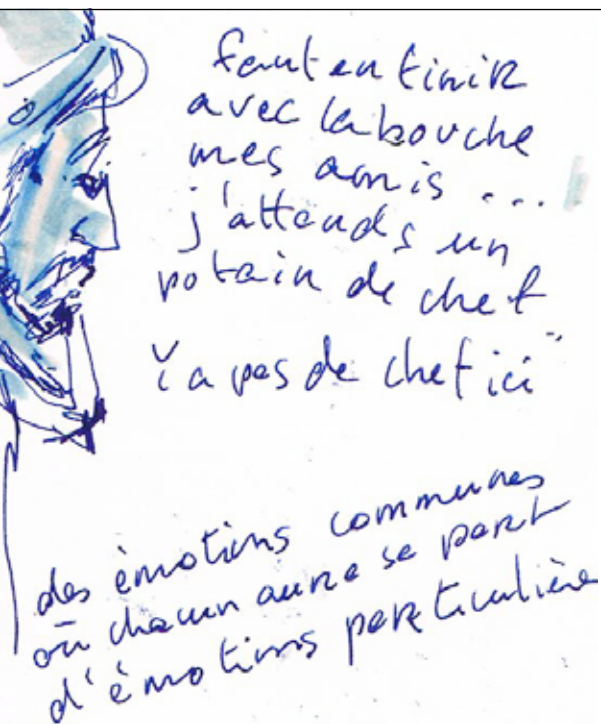 faut en finir
avec la bouche
mes amis ...
j'attends un
potain de chef
Y a pas de chef ici"
des émotions communes
où chacun aura se part
d'émotions particulière